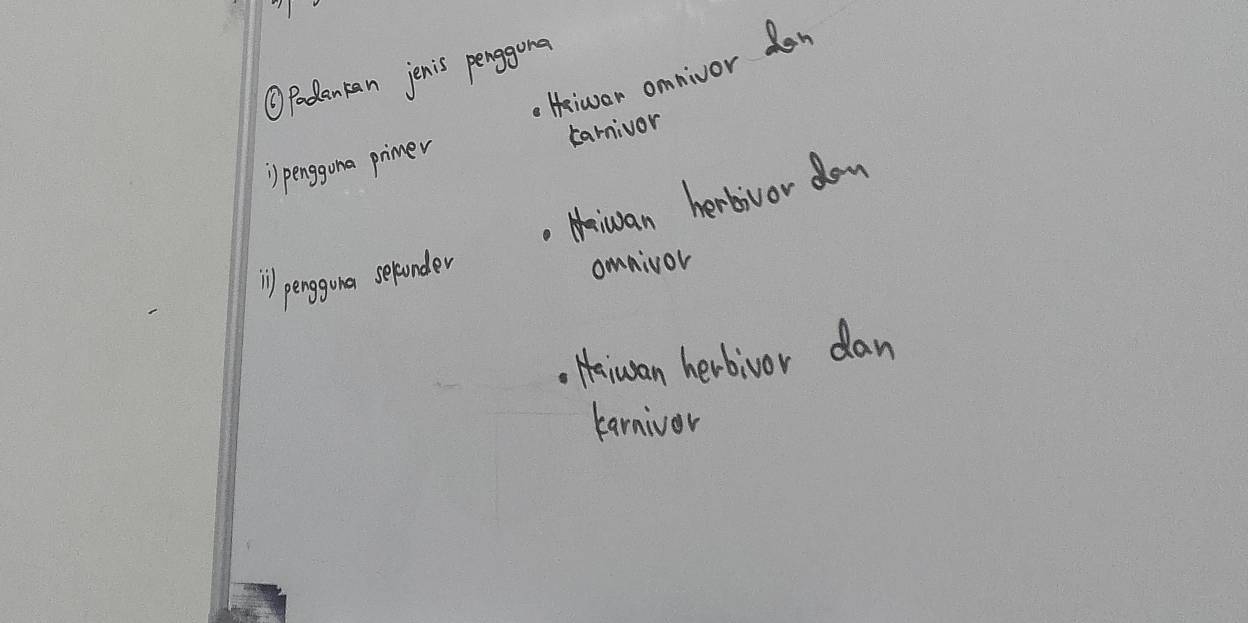 ⑥ Padankan jenis pengguna
i) pengguna primer
• Haiwan omnivor dan
karnivor
ii) pengguna sekunder
• Haiwan herbivor dan
omnivor
• Haiwan herbivor dan
karnivor